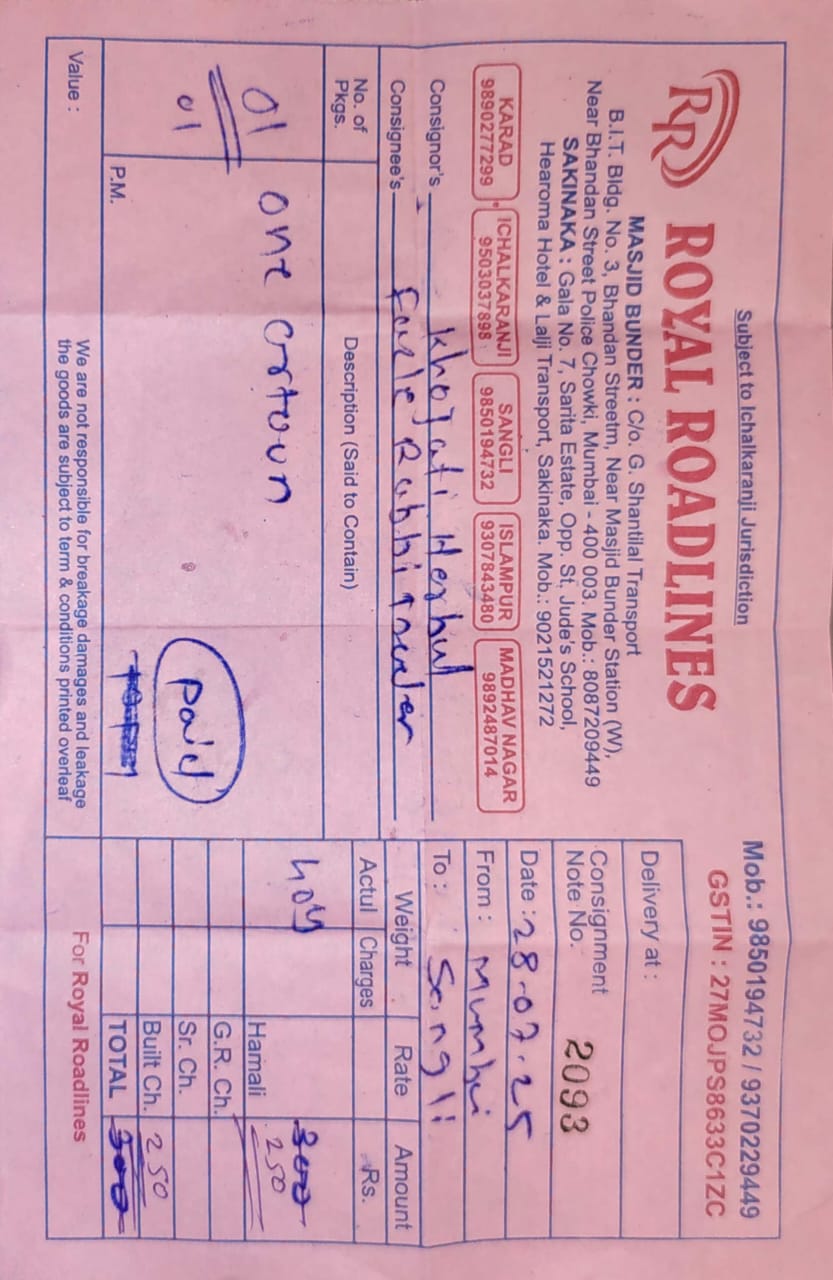 Subject to Ichalkaranji Jurisdiction
Mob.: 9850194732 / 9370229449
GSTIN : 27MOJPS8633C1ZC
RR ROYAL ROADLINES
MASJID BUNDER : C/o. G. Shantilal Transport
B.I.T. Bldg. No. 3, Bhandan Streetm, Near Masjid Bunder Station (W),
Near Bhandan Street Police Chowki, Mumbai - 400 003. Mob.: 8087209449
SAKINAKA : Gala No. 7, Sarita Estate, Opp. St. Jude's School,
Hearoma Hotel & Lalji Transport, Sakinaka. Mob.: 9021521272
KARAD
9890277299
ICHALKARANJI
9503037898
SANGLI
9850194732
ISLAMPUR
9307843480
MADHAV NAGAR
9892487014
Delivery at :
Consignment
Note No. 2093
Date : 28-07-25
From : Mumbai
To : Sangli
Consignor's Khojati Herbul
Consignee's
No. of
Pkgs.
Description (Said to Contain)
Weight
Actul
Charges
Rate
Amount
Rs.
01
01
one cortoun
paid
300
250
Hamali
G.R. Ch.
Sr. Ch.
Built Ch. 250
TOTAL 300
Value :
P.M.
We are not responsible for breakage damages and leakage
the goods are subject to term & conditions printed overleaf
For Royal Roadlines